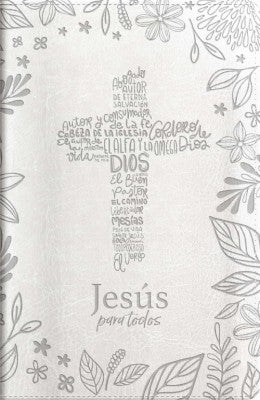 Abogado
AUTOR
DE ETERNA
SALVACIÓN
Autor y consumador
de la fe
CABEZA DE LA IGLESIA Cordero de
EL ALFA Y LA OMEGA Dios
vida
DIOS
El Buen
Pastor
EL CAMINO
Libertador
MESÍAS
El Verbo
Jesús
para todos